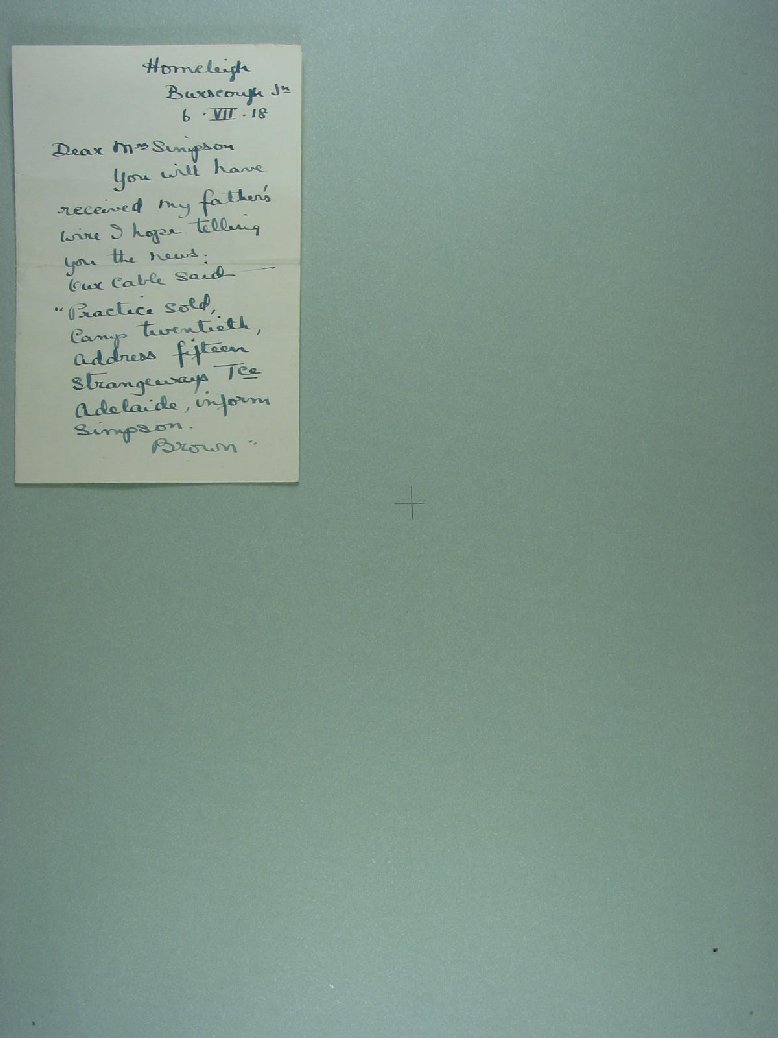 Homeleigh
Burscough Jn
6 · VII · 18
Dear Mrs Simpson
You will have
received my father's
wire I hope telling
you the news:
Our Cable said —
"Practice sold,
Camp twentieth,
address fifteen
Strangeways Tce
Adelaide, inform
Simpson.
Brown"